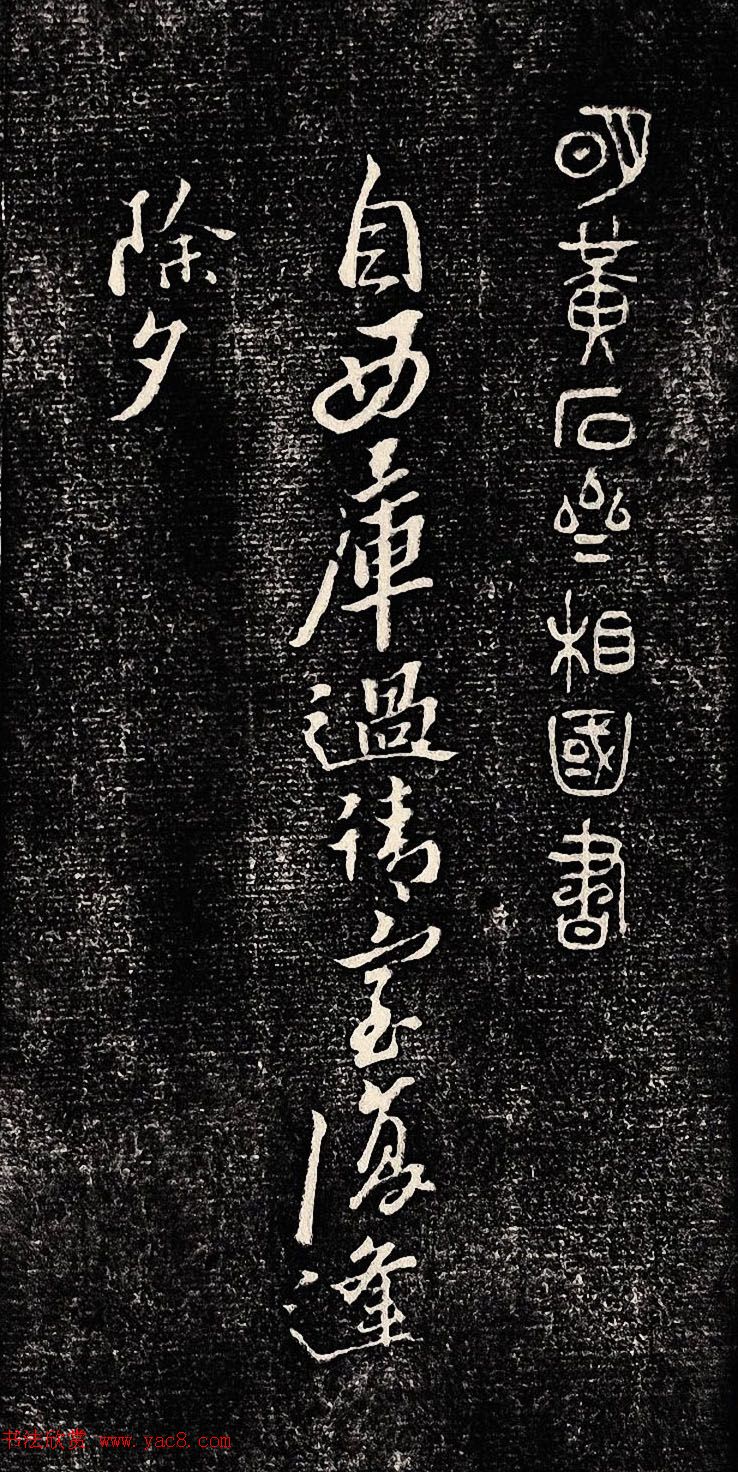 明黃石齋相國書
自西庫過請室復逢
除夕
书法欣赏 www.yac8.com